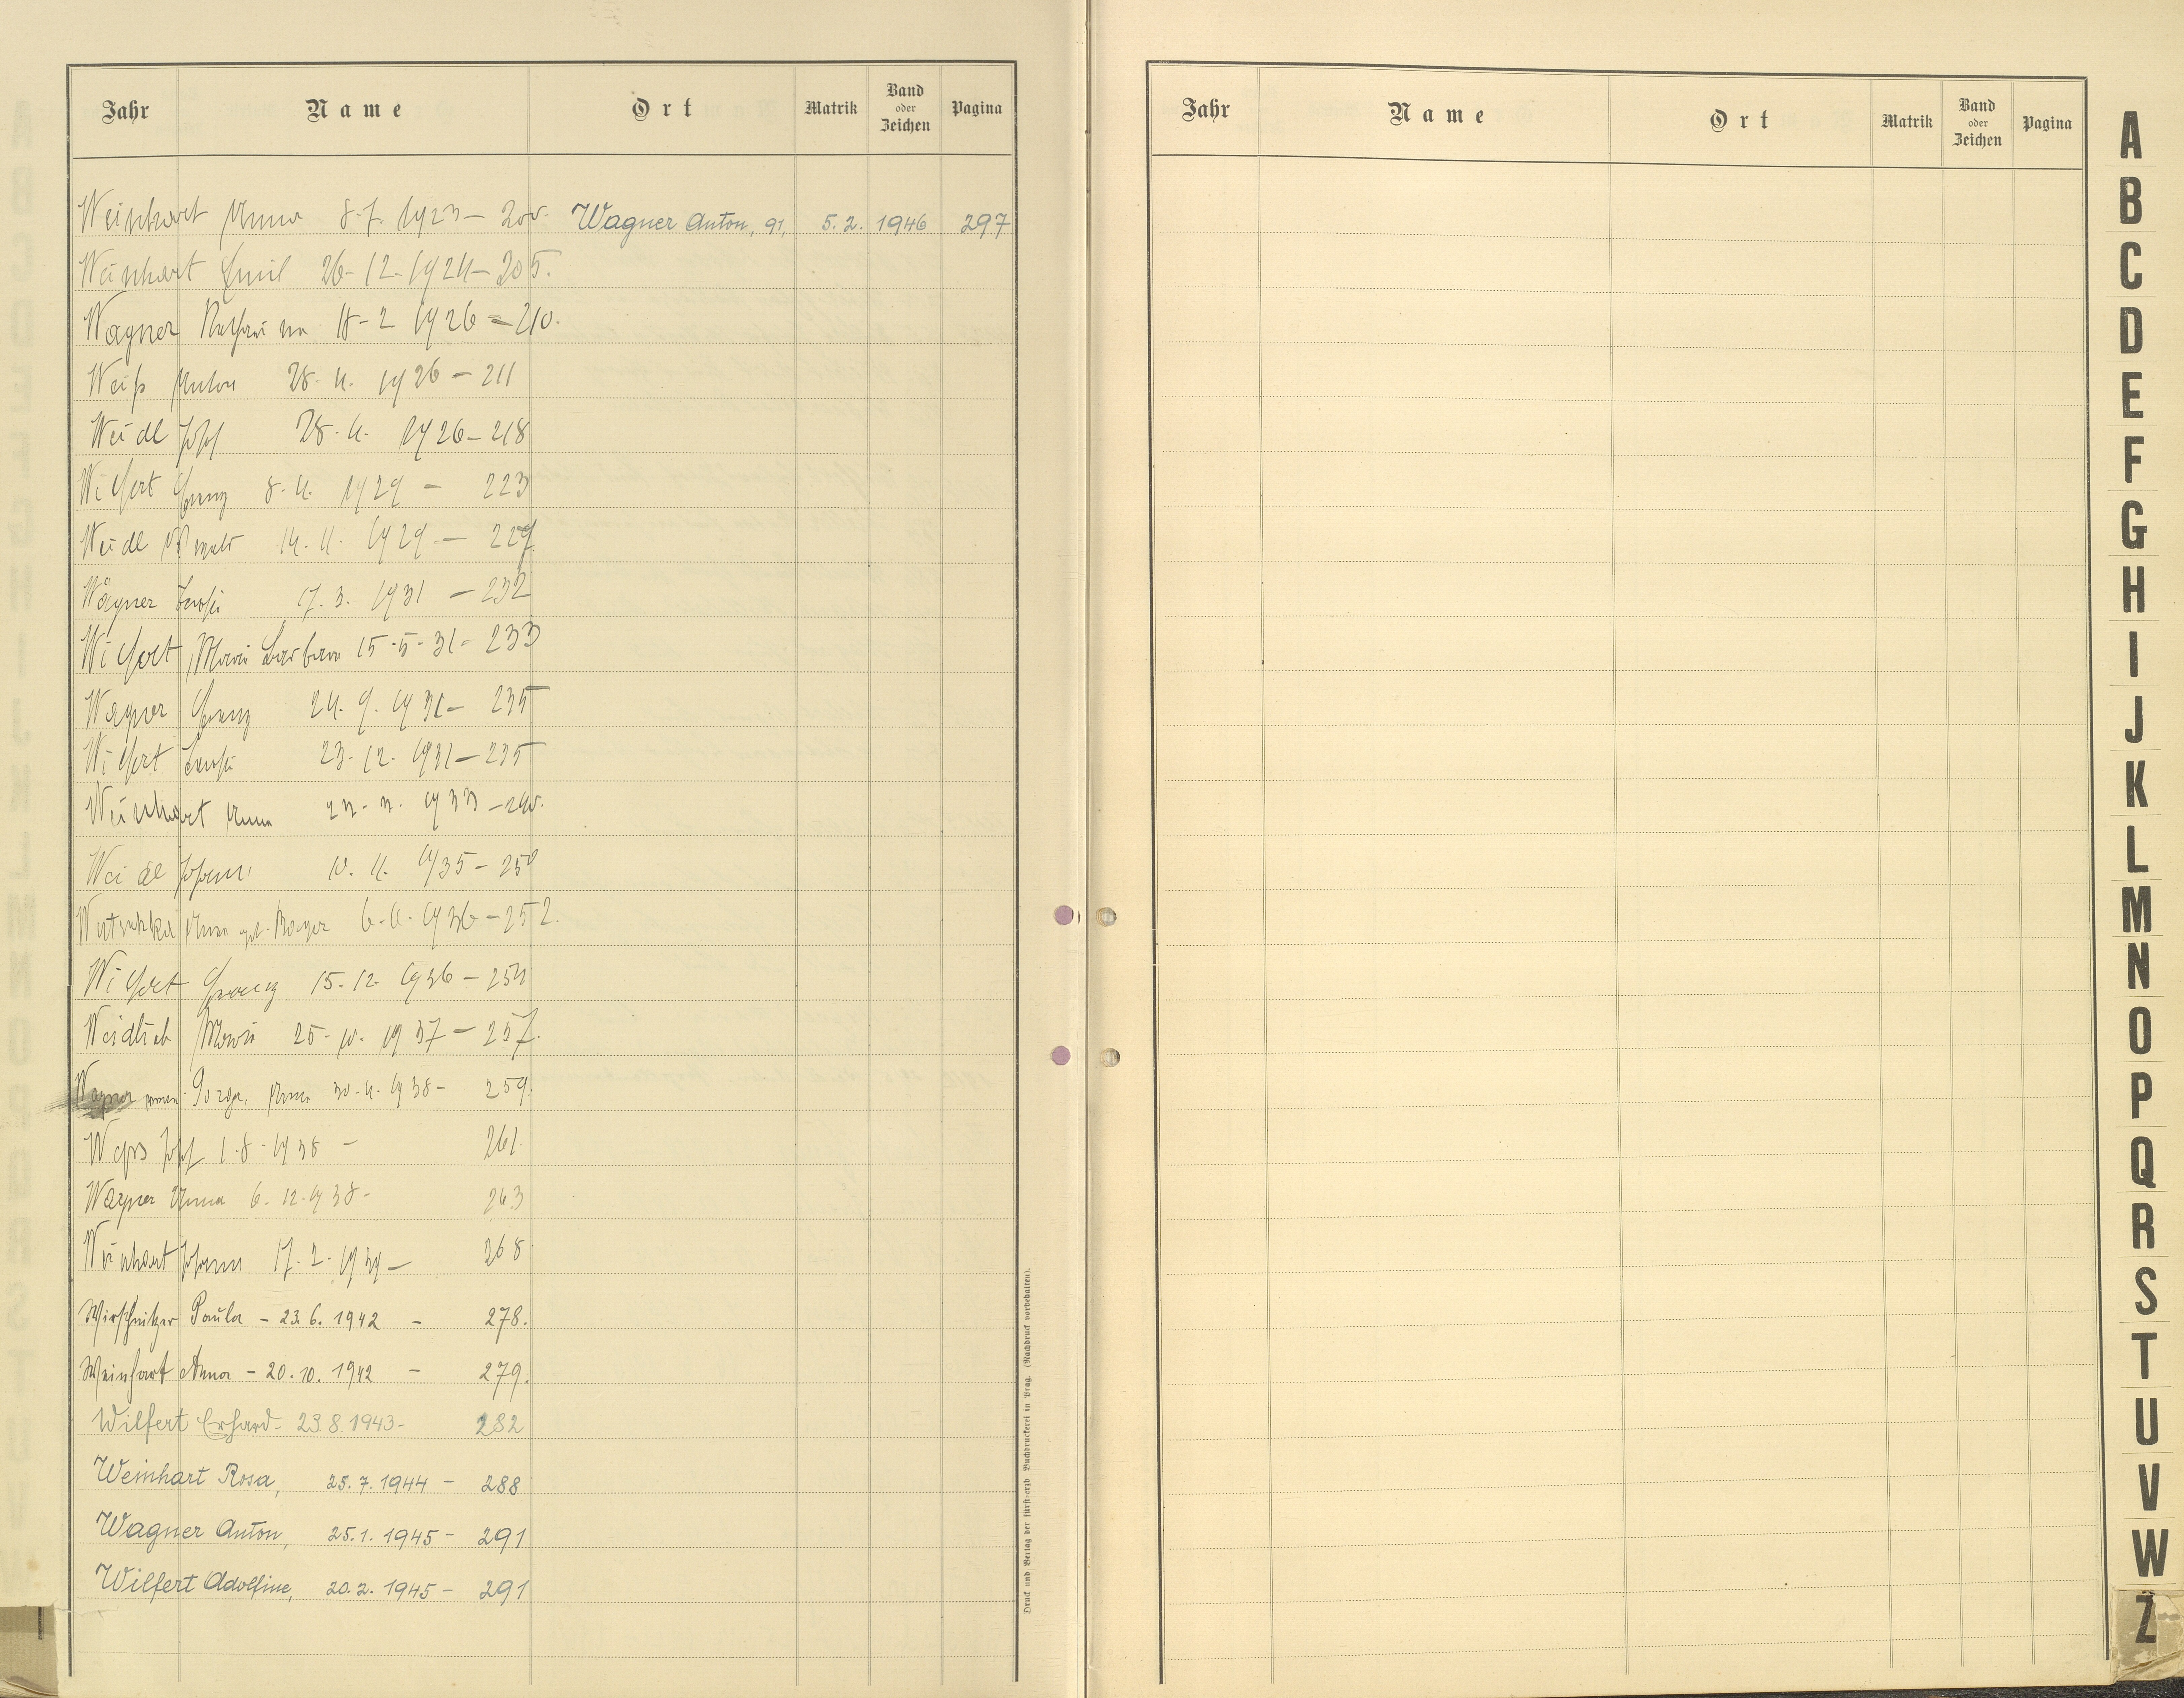 Jahr Name Ort Matrik Band oder Zeichen Pagina
Weinhart Anna 8.7. 1923 – 200. Wagner Anton, 91, 5.2. 1946 297
Weinhart Emil 26-12-1924 – 205.
Wagner Katharina 18-2 1926 – 210.
Weiß Anton 28. 4. 1926 – 211
Weidl Josef 28. 4. 1926 – 218
Wilfert Franz 8. 4. 1929 – 223
Weidl Oswald 14. 4. 1929 – 227
Wagner Theresia 17. 3. 1931 – 232
Wilfert Maria Barbara 15-5-31 – 233
Wagner Franz 24. 9. 1931 – 235
Wilfert Theresia 23. 12. 1931 – 235
Weinhart Anna 1933 – 240.
Weidl Johann 10. 4. 1935 – 250
Anna geb. 6. 4. 1936 – 252.
Wilfert Franz 15. 12. 1936 – 254
Weidlich Maria 25-10. 1937 – 257.
Wagner Anna 30. 4. 1938 – 259.
Josef 1. 8. 1938 – 261.
Wagner Anna 6. 12. 1938 – 263
Weinhart Johann 17. 2. 1939 – 268
Wirschnitzer Paula – 23. 6. 1942 – 278.
Weinhart Anna – 20. 10. 1942 – 279.
Wilfert Erhard – 23. 8. 1943 – 282
Weinhart Rosa, 25. 7. 1944 – 288
Wagner Anton, 25. 1. 1945 – 291
Wilfert Adolfine, 20. 2. 1945 – 291
Druck und Verlag der fürst-erzb. Buchdruckerei in Prag. (Nachdruck vorbehalten).
Jahr Name Ort Matrik Band oder Zeichen Pagina
A
B
C
D
E
F
G
H
I
J
K
L
M
N
O
P
Q
R
S
T
U
V
W
Z